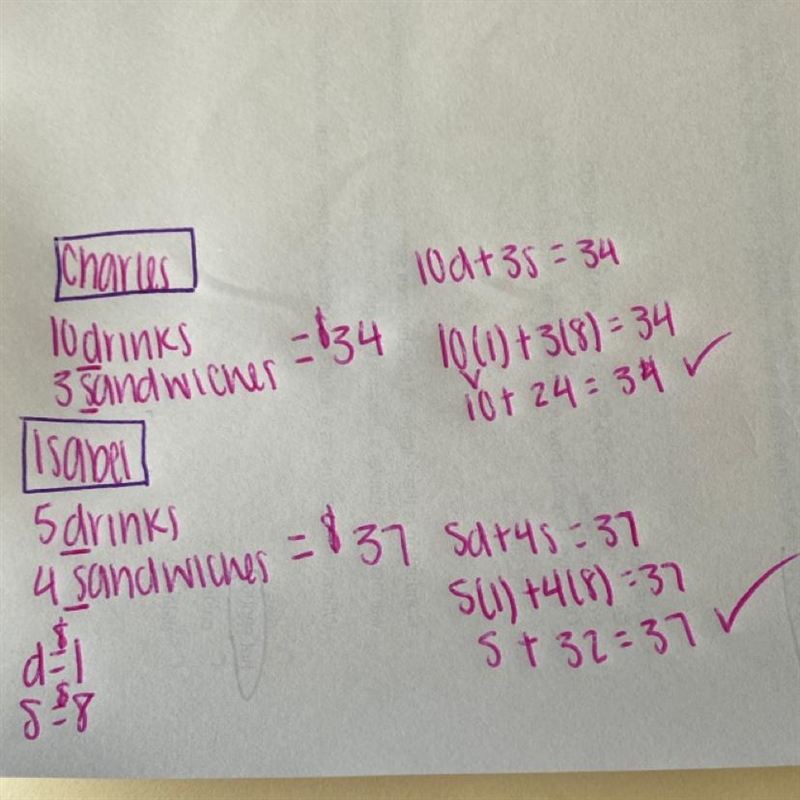 Charles
10 drinks
3 sandwiches
= $34
10d+3s = 34
10(1)+3(8) = 34
10+ 24 = 34 ✓
Isabel
5 drinks
4 sandwiches
= $37
5d+4s = 37
5(1)+4(8) = 37
5 + 32 = 37 ✓
d = $1
s = $8